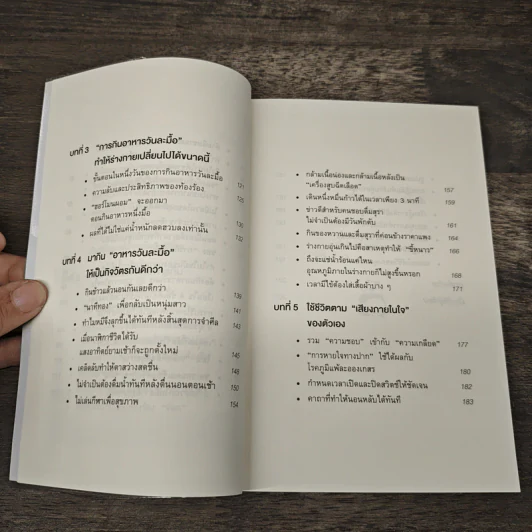 บทที่ 3 "การกินอาหารวันละมื้อ"
ทำให้ร่างกายเปลี่ยนไปได้ขนาดนี้
• ขั้นตอนในหนึ่งวันของการกินอาหารวันละมื้อ 121
• ความลับและประสิทธิภาพของท้องร้อง 125
• "ฮอร์โมนผอม" จะออกมา
ตอนกินอาหารหนึ่งมื้อ
• ผลที่ได้ไม่ใช่แค่น้ำหนักลดฮวบลงเท่านั้น 133
บทที่ 4 มากิน "อาหารวันละมื้อ"
ให้เป็นกิจวัตรกันดีกว่า
• กินข้าวแล้วนอนกันเลยดีกว่า 139
• "นาทีทอง" เพื่อกลับเป็นหนุ่มสาว 141
• ทำไมหมีจึงลุกขึ้นได้ทันทีหลังสิ้นสุดการจำศีล 143
• เมื่อนาฬิกาชีวิตได้รับ
แสงอาทิตย์ยามเช้าก็จะถูกตั้งใหม่ 145
• เคล็ดลับทำให้ตาสว่างสดชื่น 148
• ไม่จำเป็นต้องดื่มน้ำทันทีหลังตื่นนอนตอนเช้า 150
• ไม่เล่นกีฬาเพื่อสุขภาพ 154
• กล้ามเนื้อน่องและกล้ามเนื้อหลังเป็น
"เครื่องสูบฉีดเลือด" 157
• เดินหนึ่งหมื่นก้าวได้ในเวลาเพียง 3 นาที 159
• ข่าวดีสำหรับคนชอบดื่มสุรา
ไม่จำเป็นต้องมีวันพักตับ 161
• กินของหวานและดื่มสุราที่ค่อนข้างราคาแพง 164
• ร่างกายอุ่นเกินไปคือสาเหตุทำให้ "ขี้หนาว" 166
• ถึงจะแช่น้ำร้อนแค่ไหน
อุณหภูมิภายในร่างกายก็ไม่สูงขึ้นหรอก 168
• เวลามีไข้ต้องใส่เสื้อผ้าบาง ๆ 171
บทที่ 5 ใช้ชีวิตตาม "เสียงภายในใจ"
ของตัวเอง
• รวม "ความชอบ" เข้ากับ "ความเกลียด" 177
• "การหายใจทางปาก" ใช้ได้ผลกับ
โรคภูมิแพ้ละอองเกสร 180
• กำหนดเวลาเปิดและปิดสวิตช์ให้ชัดเจน 182
• คาถาที่ทำให้นอนหลับได้ทันที 183